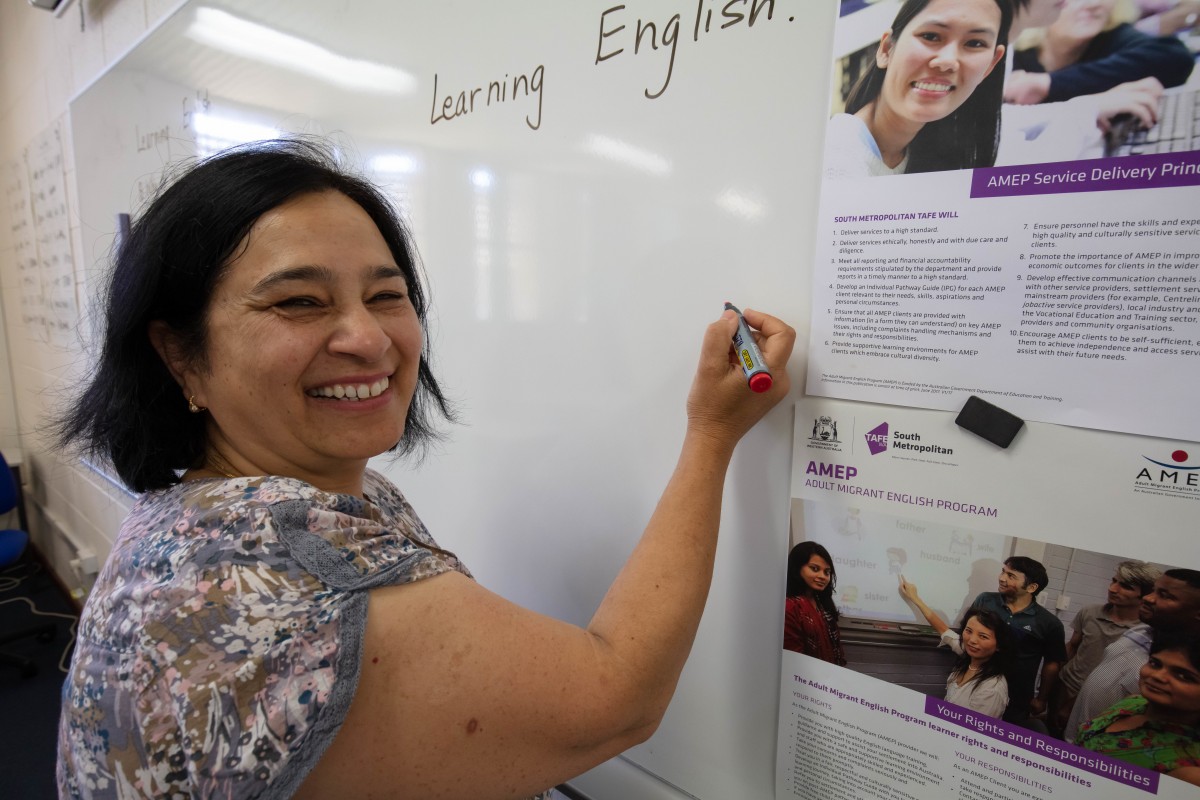 Learning English.
AMEP Service Delivery Princ
SOUTH METROPOLITAN TAFE WILL
1. Deliver services to a high standard.
2. Deliver services ethically, honestly and with due care and
diligence.
3. Meet all reporting and financial accountability
requirements stipulated by the department and provide
reports in a timely manner to a high standard.
4. Develop an individual Pathway Guide (IPG) for each AMEP
client relevant to their needs, skills, aspirations and
personal circumstances.
5. Ensure that all AMEP clients are provided with
information (in a form they can understand) on key AMEP
issues, including complaints handling mechanisms and
their rights and responsibilities.
6. Provide supportive learning environments for AMEP
clients which embrace cultural diversity.
7. Ensure personnel have the skills and expe
high quality and culturally sensitive servic
clients.
8. Promote the importance of AMEP in impro
economic outcomes for clients in the wider
9. Develop effective communication channels
with other service providers, settlement serv
mainstream providers (for example, Centrelin
jobactive service providers), local industry and
the Vocational Education and Training sector,
providers and community organisations.
10. Encourage AMEP clients to be self-sufficient, e
them to achieve independence and access servi
assist with their future needs.
The Adult Migrant English Program (AMEP) is funded by the Australian Government Department of Education and Training.
GOVERNMENT OF
WESTERN AUSTRALIA
TAFE
South
Metropolitan
AMEP
ADULT MIGRANT ENGLISH PROGRAM
AME
Adult Migrant English Pro
father
daughter
husband
wife
sister
Your Rights and Responsibilities
The Adult Migrant English Program learner rights and responsibilities
YOUR RIGHTS
As the Adult Migrant English Program (AMEP) provider we will:
YOUR RESPONSIBILITIES
As an AMEP Client you are
Attend and